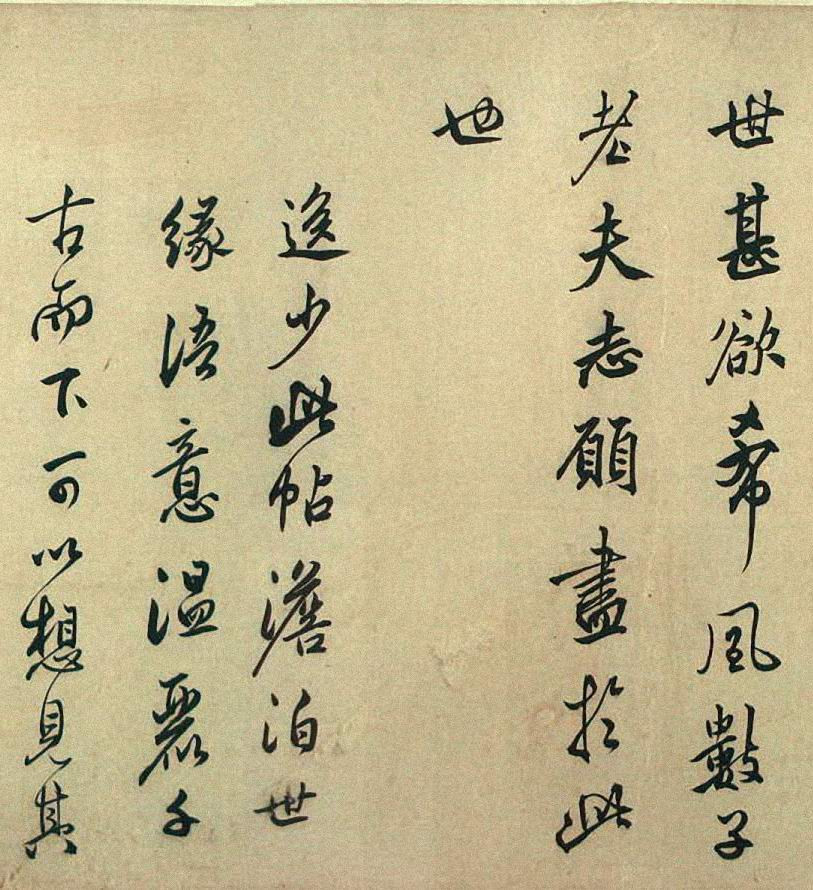 世甚欲希風數子
老夫志願盡於此
也
逸少此帖澹泊世
緣語意溫麗千
古而下可以想見其